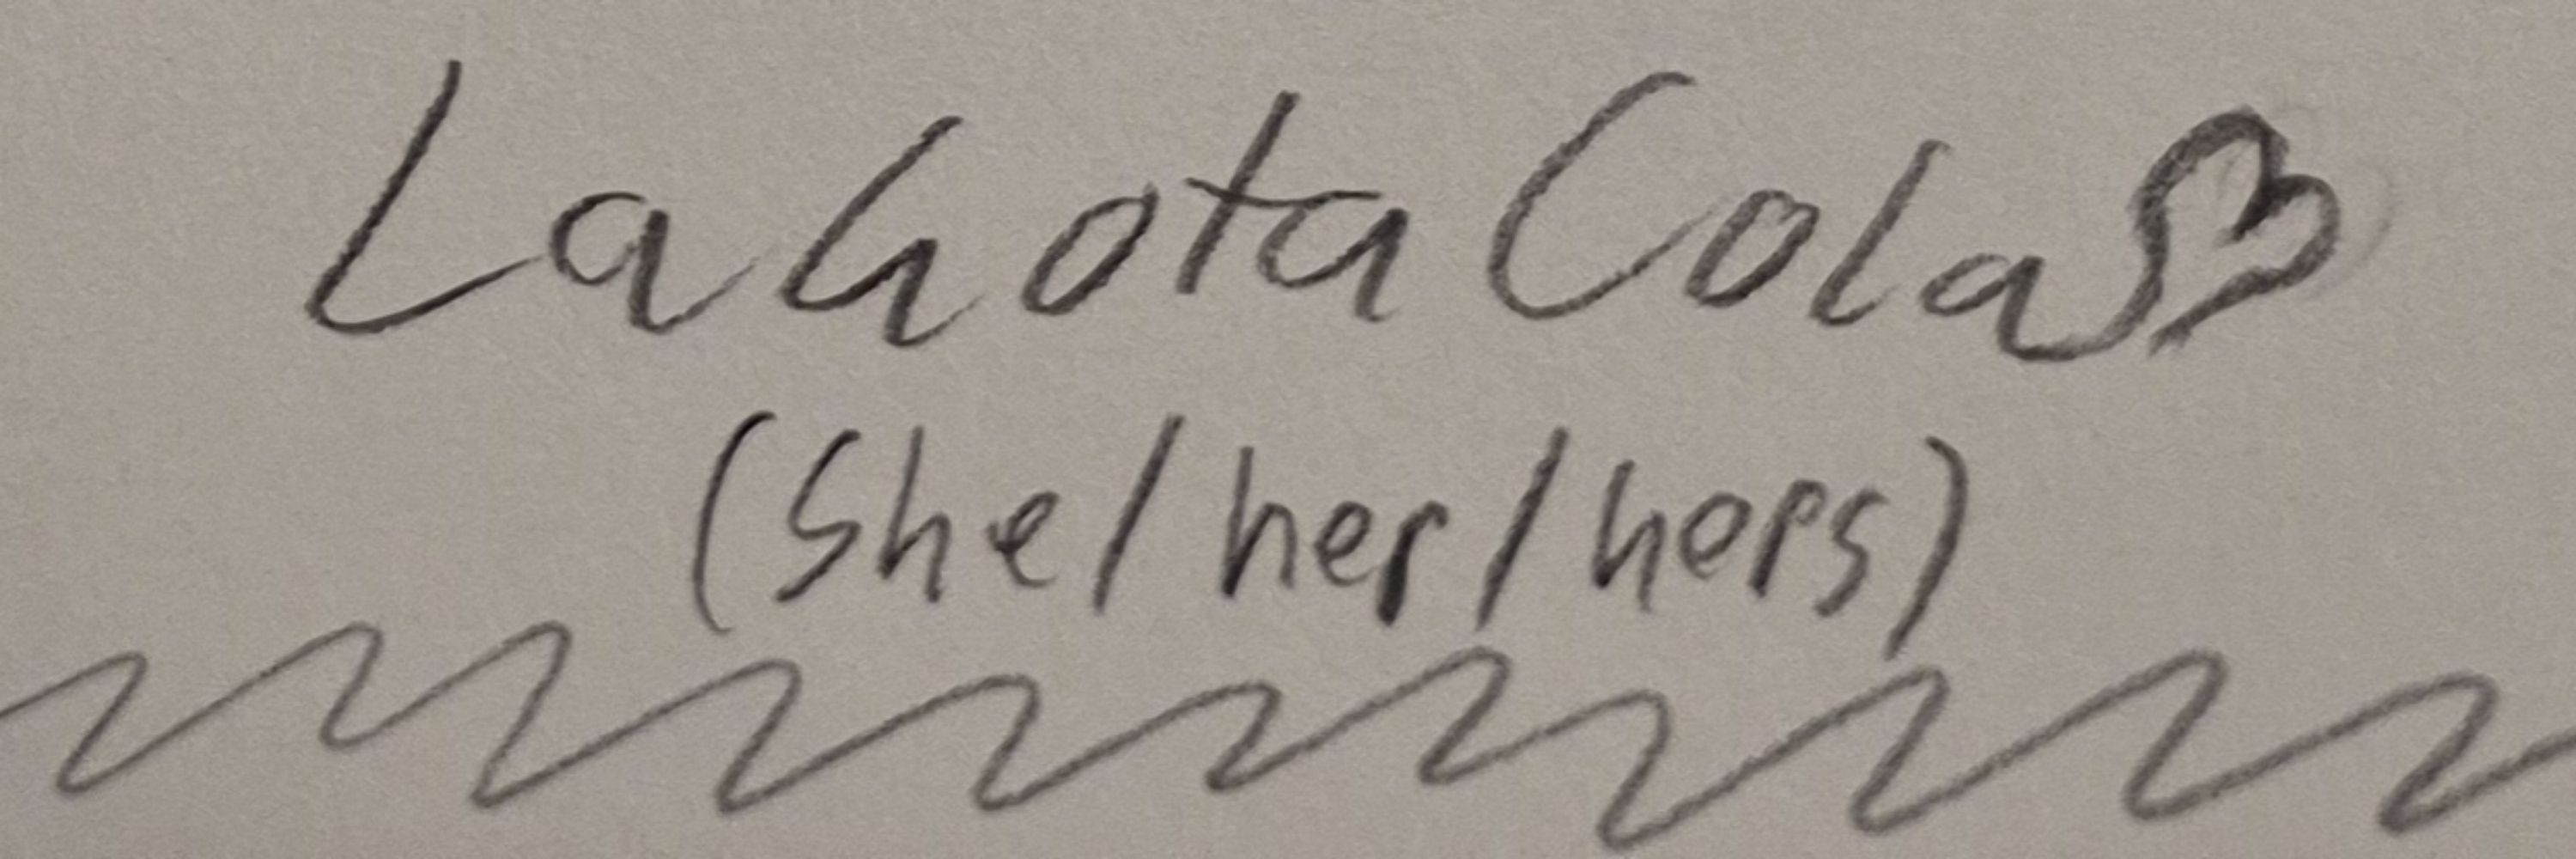 LaGota Cola♡
(She/her/hers)